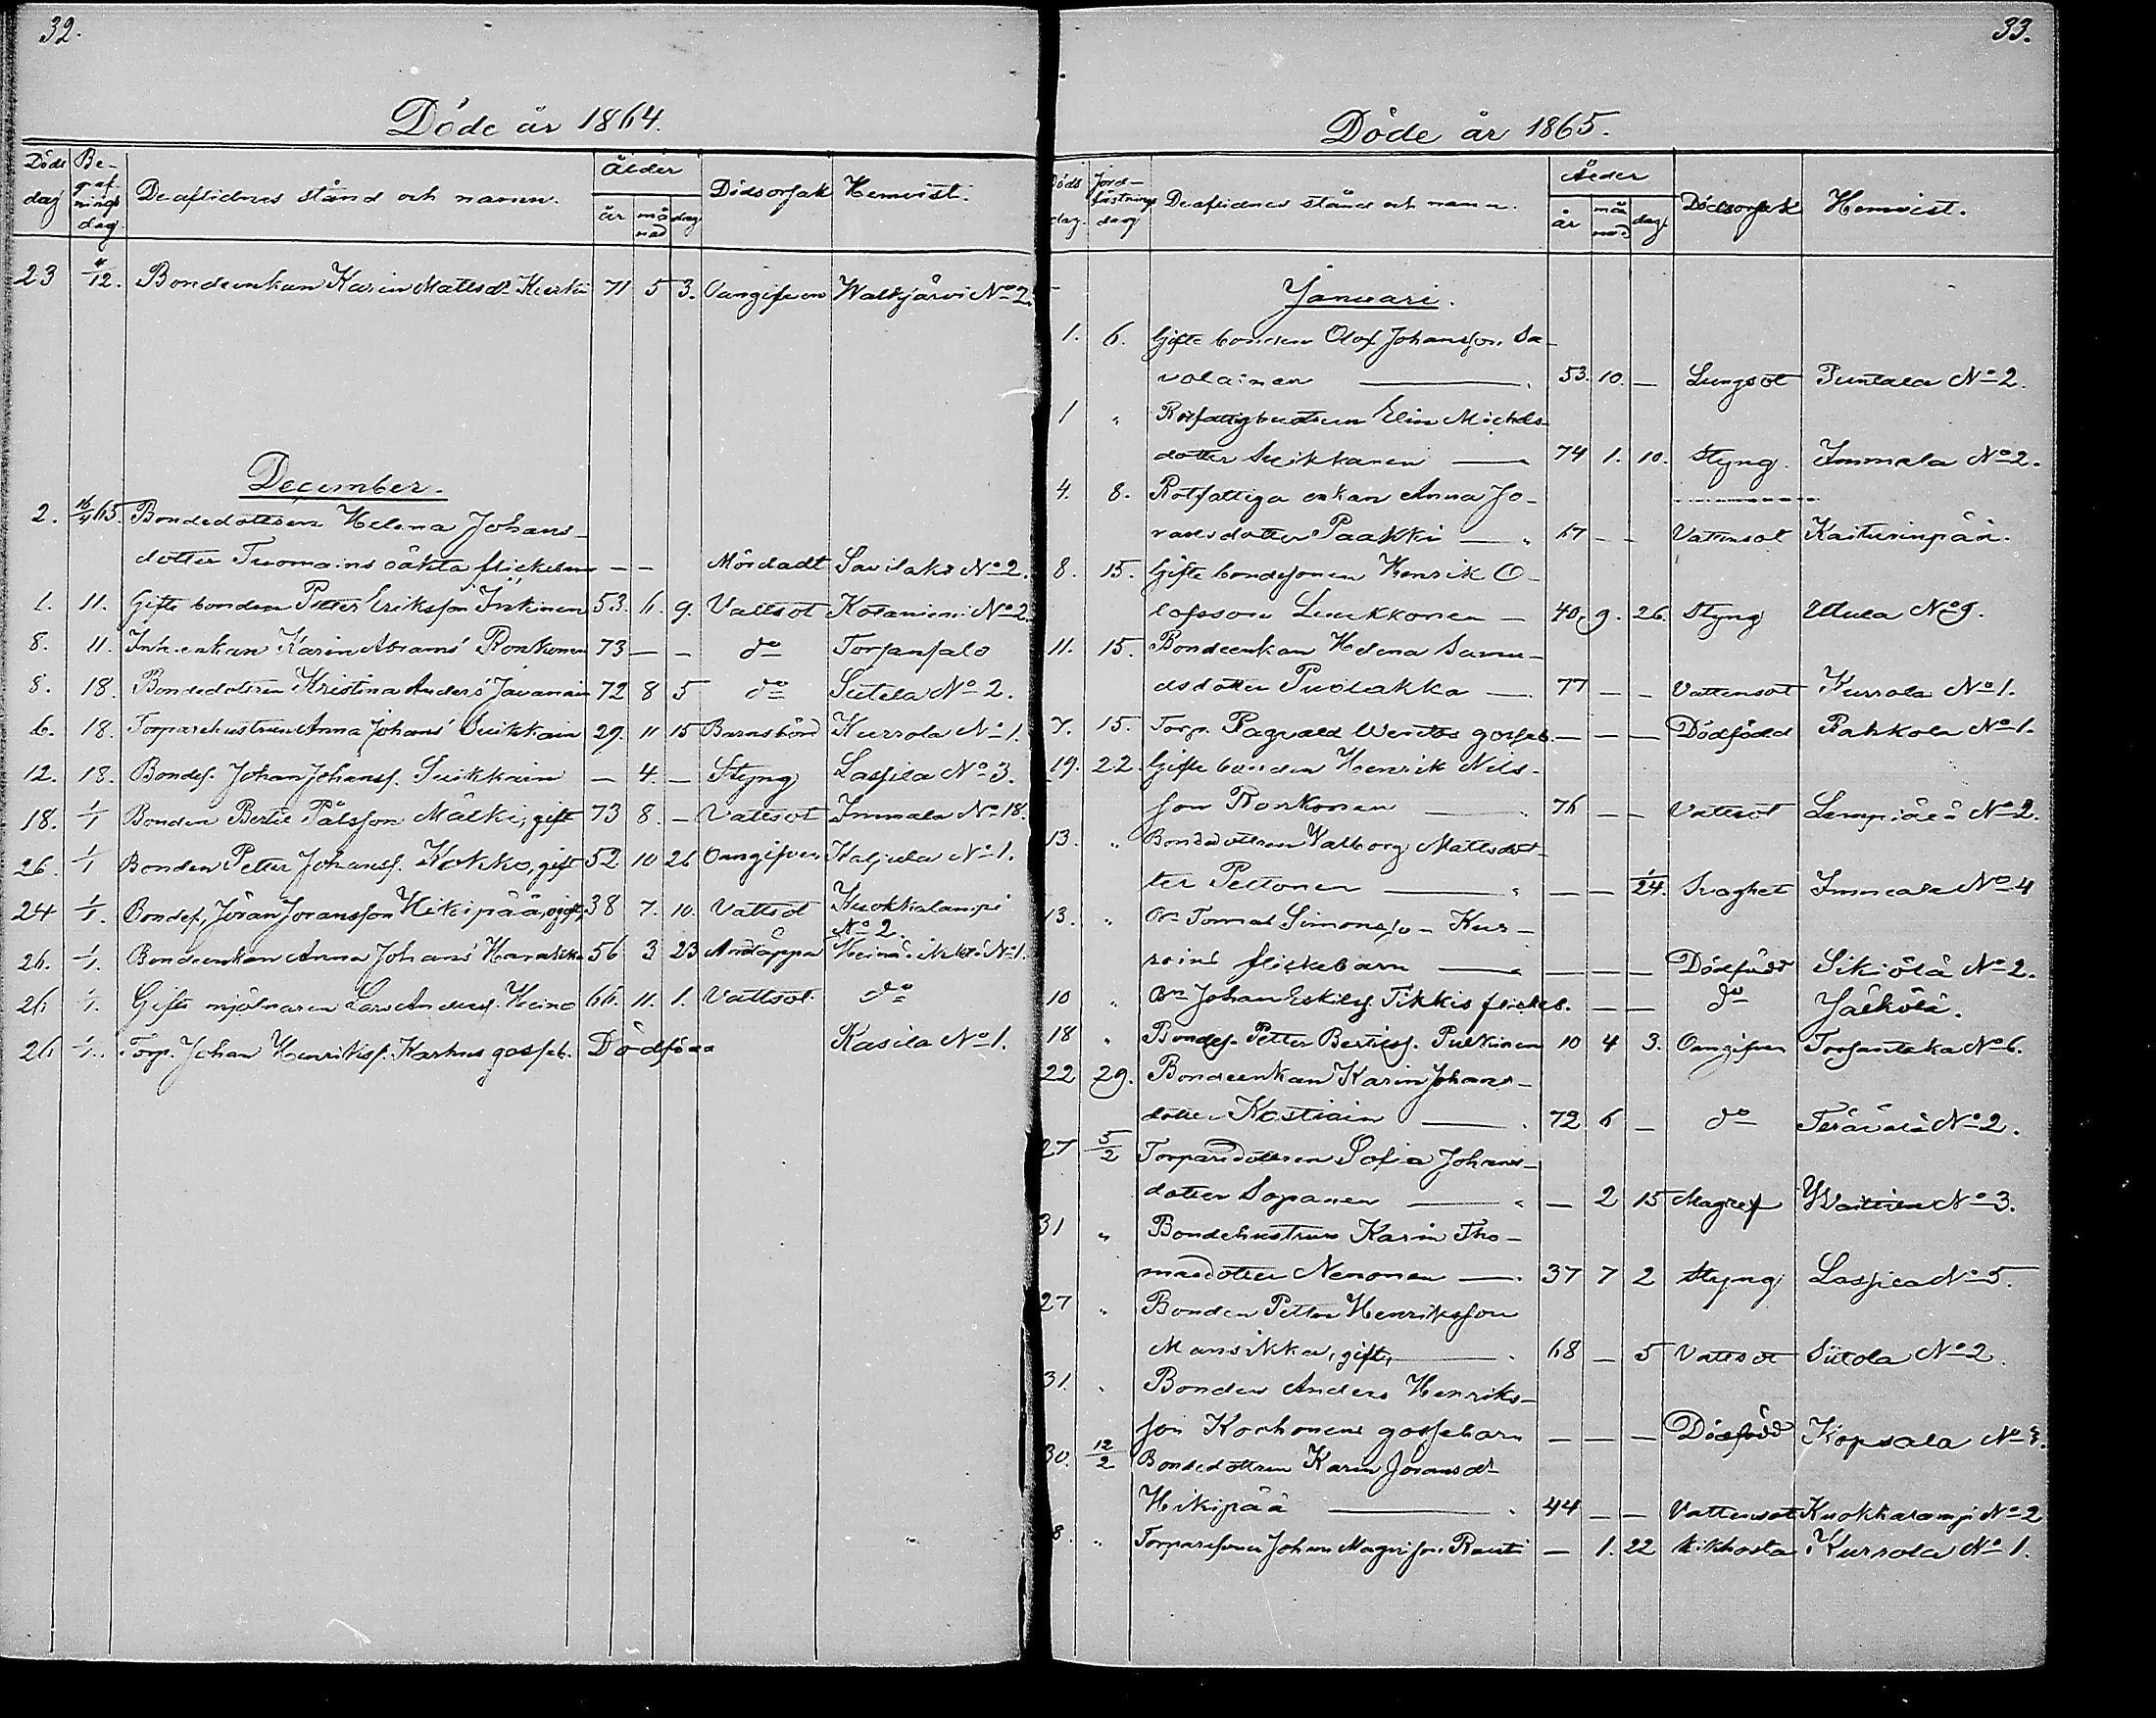 32.
Döde år 1864.
Döds dag Be-grafnings dag. De aflidnes stånd och namn. Ålder år månad dag Dödsorsak Hemvist.
23 4/12. Bondeenkan Karin Mattsdr Kurki 71 5 3. Oangifven Walkjärvi No 2.
December.
2. 16/4 65. Bondedottren Helena Johans-
dotter Tuomains oäkta flickebarn — — Mördadt Savilaks No 2.
1. 11. Gifte bonden Petter Eriksson Inkinen 53. 6. 9. Vattsot Kosaniemi No 2.
8. 11. Inh. enkan Karin Abrams Ronkonen 73 — — do Torsansalo
8. 18. Bondedottren Kristina Anders Javanain 72 8 5 do Sutela No 2.
6. 18. Torparehustrun Anna Johans Suikkain 29. 11 15 Barnsbörd Kurrola No 1.
12. 18. Bondes. Johan Johanss. Suikkain — 4. — Styng Laspila No 3.
18. 1/1 Bonden Bertil Pålsson Mälki, gift 73 8. — Vattsot Immala No 18.
26. 1/1 Bonden Petter Johanss. Kokko, gift 52 10 26 Oangifven Haljula No 1.
24 1/1. Bondes. Jöran Joransson Hikipää, ogift, 38 7. 10. Vattsot Kuokkalampi
No 2.
26. 1/1. Bondeenkan Anna Johans 56 3 23 Andtäppa No 1.
26 1/1. Gifte mjölnaren Lars Anderss. Heino 66. 11. 1. Vattsot do
26 1/1. Torp. Johan Henrikss. Karhus gosseb. Dödfödd Kasila No 1.
33.
Döde år 1865.
Döds dag. Jord-fästnings dag De aflidnes stånd och namn. Ålder år månad dag. Dödsorsak Hemvist.
Januari.
1. 6. Gifte bonden Olof Johansson Sa-
volainen — 53. 10. — Lungsot Puntala No 2.
1 " Rotfattighustrun Elin Michels-
dotter Suikkanen — 74 1. 10. Styng. Immala No 2.
4. 8. Rotfattiga enkan Anna Jo-
ransdotter Paakki — 67 — — Vattensot Kaiturinpää.
8. 15. Gifte bondesonen Henrik O-
lofsson Luukkonen — 40. 9. 26. Styng Utula No 9.
11. 15. Bondeenkan Helena Samu-
elsdotter Puolakka — 77 — — Vattensot Kurrola No 1.
7. 15. Torp. Pagvald Werdes gosseb. — — — Dödfödd Pahkola No 1.
19. 22. Gifte bonden Henrik Nils-
son Ronkonen — 76 — — Vattsot Lempiälä No 2.
13. " Bondedottren Valborg Mattsdot-
ter Peltonen — — — 1/24. Svaghet Immala No 4
13. " Bn Tomas Simonss. Kur-
roins flickebarn — — — — Dödfödd Sikiölä No 2.
10 " Bn Johan Eskilss. Tikkis flickeb. — — do Jälkölä.
18 " Bondes. Petter Bertilss. Pulkinen 10 4 3. Oangifven Torsantaka No 6.
22 29. Bondeenkan Karin Johans-
dotter Kostiain — 72 6 — do Terävälä No 2.
27 5/2 Torparedottren Sofia Johans-
dotter Sopanen — — 2 15 Magref No 3.
31 " Bondehustrun Karin Tho-
masdotter Nenonen — 37 7 2 Styng Laspila No 5.
27 " Bonden Petter Henriksson
Mansikka, gift, — 68 — 5 Vattsot Siitola No 2.
31. " Bonden Anders Henriks-
son Korhonens gossebarn — — — Dödfödd Kopsala No 3.
30. 12/2 Bondedottren Karin Joransdr
Hikipää — 44 — — Vattensot Kuokkalampi No 2
8. " Torparesonen Johan Magnisson Rauti — 1. 22 Kikhosta Kurrola No 1.